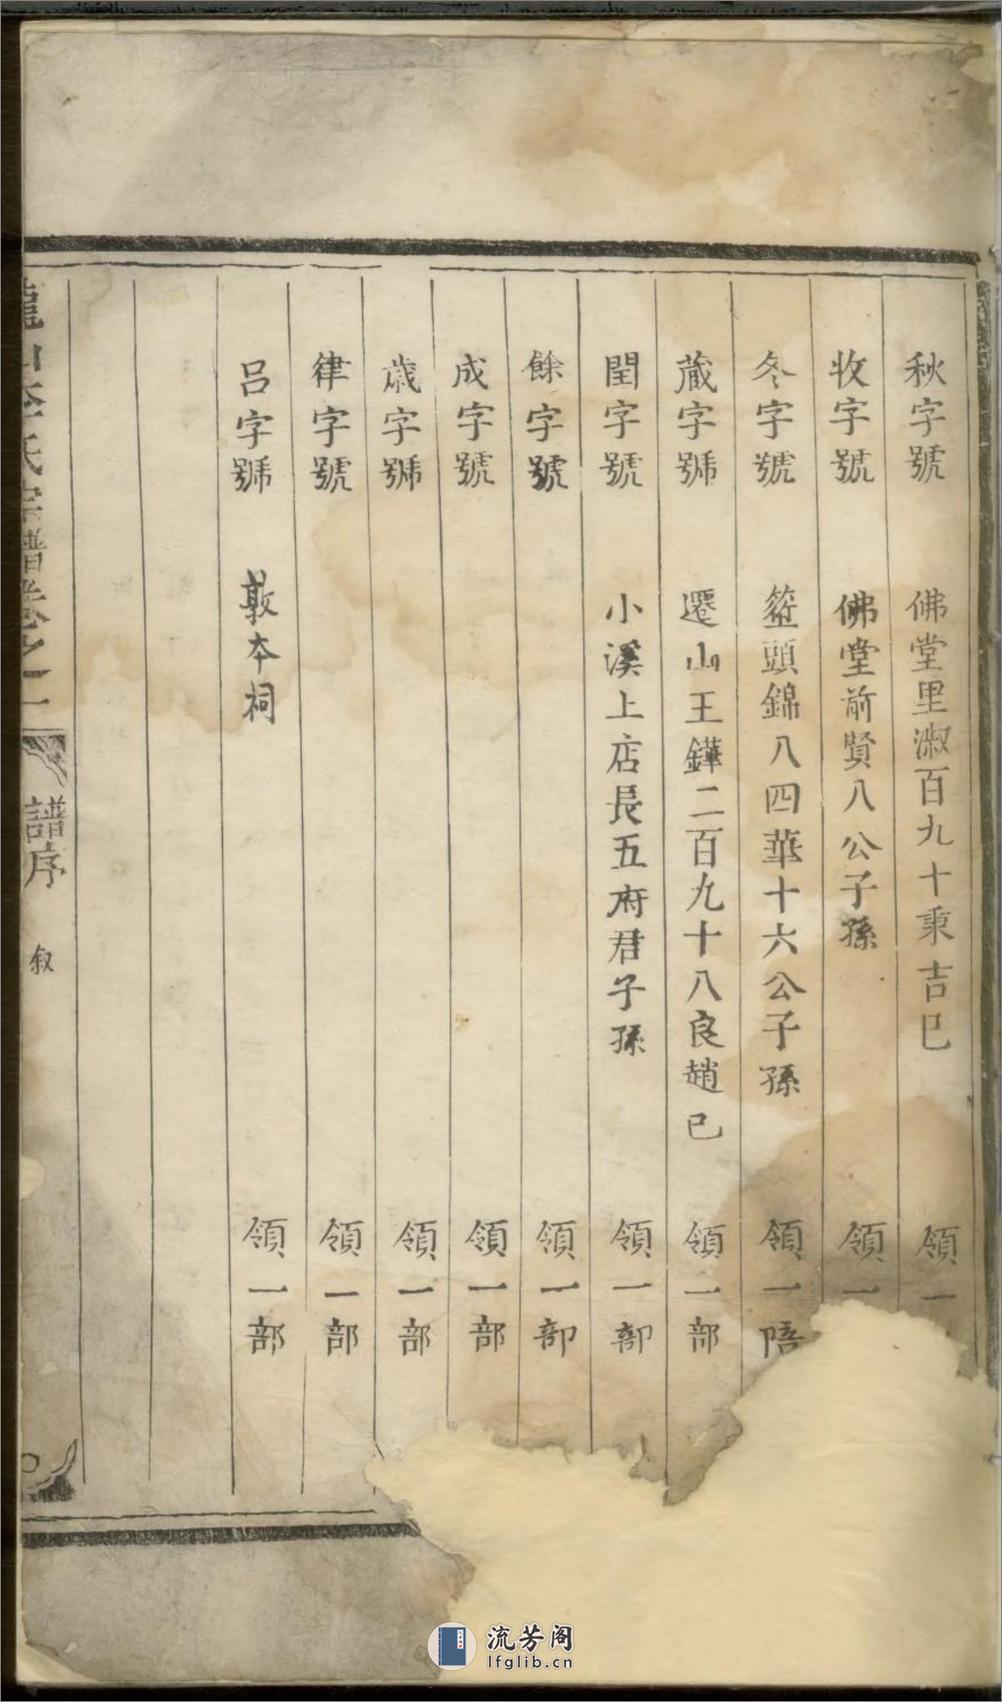 秋字號 佛堂里淑百九十秉吉巳 領一
收字號 佛堂前賢八公子孫 領一
冬字號 頭錦八四華十六公子孫 領一部
藏字號 遷山王鏵二百九十八良趙巳 領一部
閏字號 小溪上店長五府君子孫 領一部
餘字號 領一部
成字號 領一部
歲字號 領一部
律字號 領一部
呂字號 敦本祠 領一部
龍山李氏宗譜卷之一
譜序 叙
流芳阁
lfglib.cn